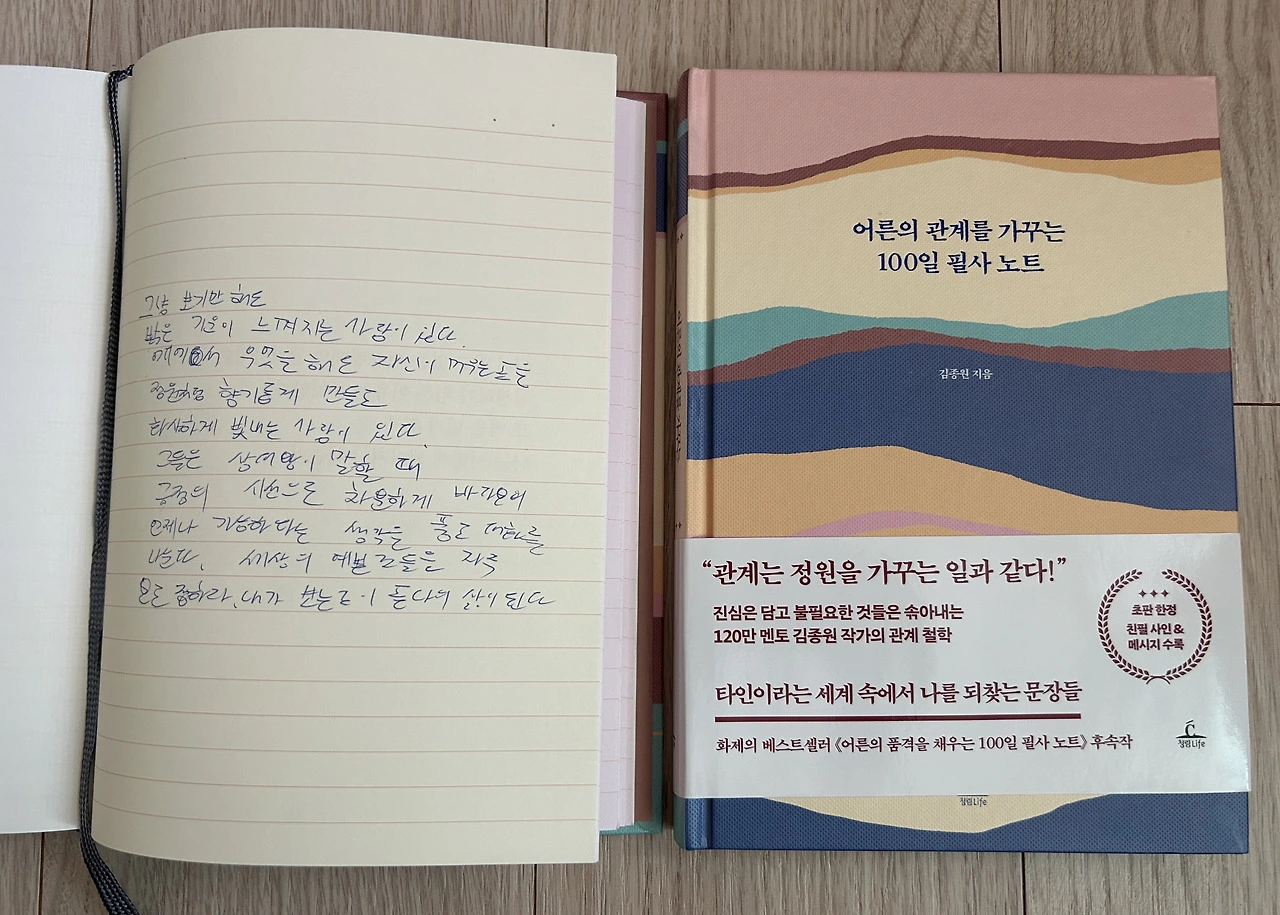 그냥 보기만 해도
밝은 기운이 느껴지는 사람이 있다.
무엇을 해도 자신이 머무는 곳을
정원처럼 향기롭게 만들고
화사하게 빛내는 사람이 있다.
그들은 상대방이 말할 때
긍정의 시선으로 차분하게 바라보며
언제나 가능하다는 생각을 품고 대화를
나눈다. 세상의 예쁜 것들을 자주
보는 것이 나의 삶이 된다
어른의 관계를 가꾸는
100일 필사 노트
김종원 지음
“관계는 정원을 가꾸는 일과 같다!”
진심은 담고 불필요한 것들은 솎아내는
120만 멘토 김종원 작가의 관계 철학
초판 한정
친필 사인 &
메시지 수록
타인이라는 세계 속에서 나를 되찾는 문장들
화제의 베스트셀러 《어른의 품격을 채우는 100일 필사 노트》 후속작
청림Life
청림Life